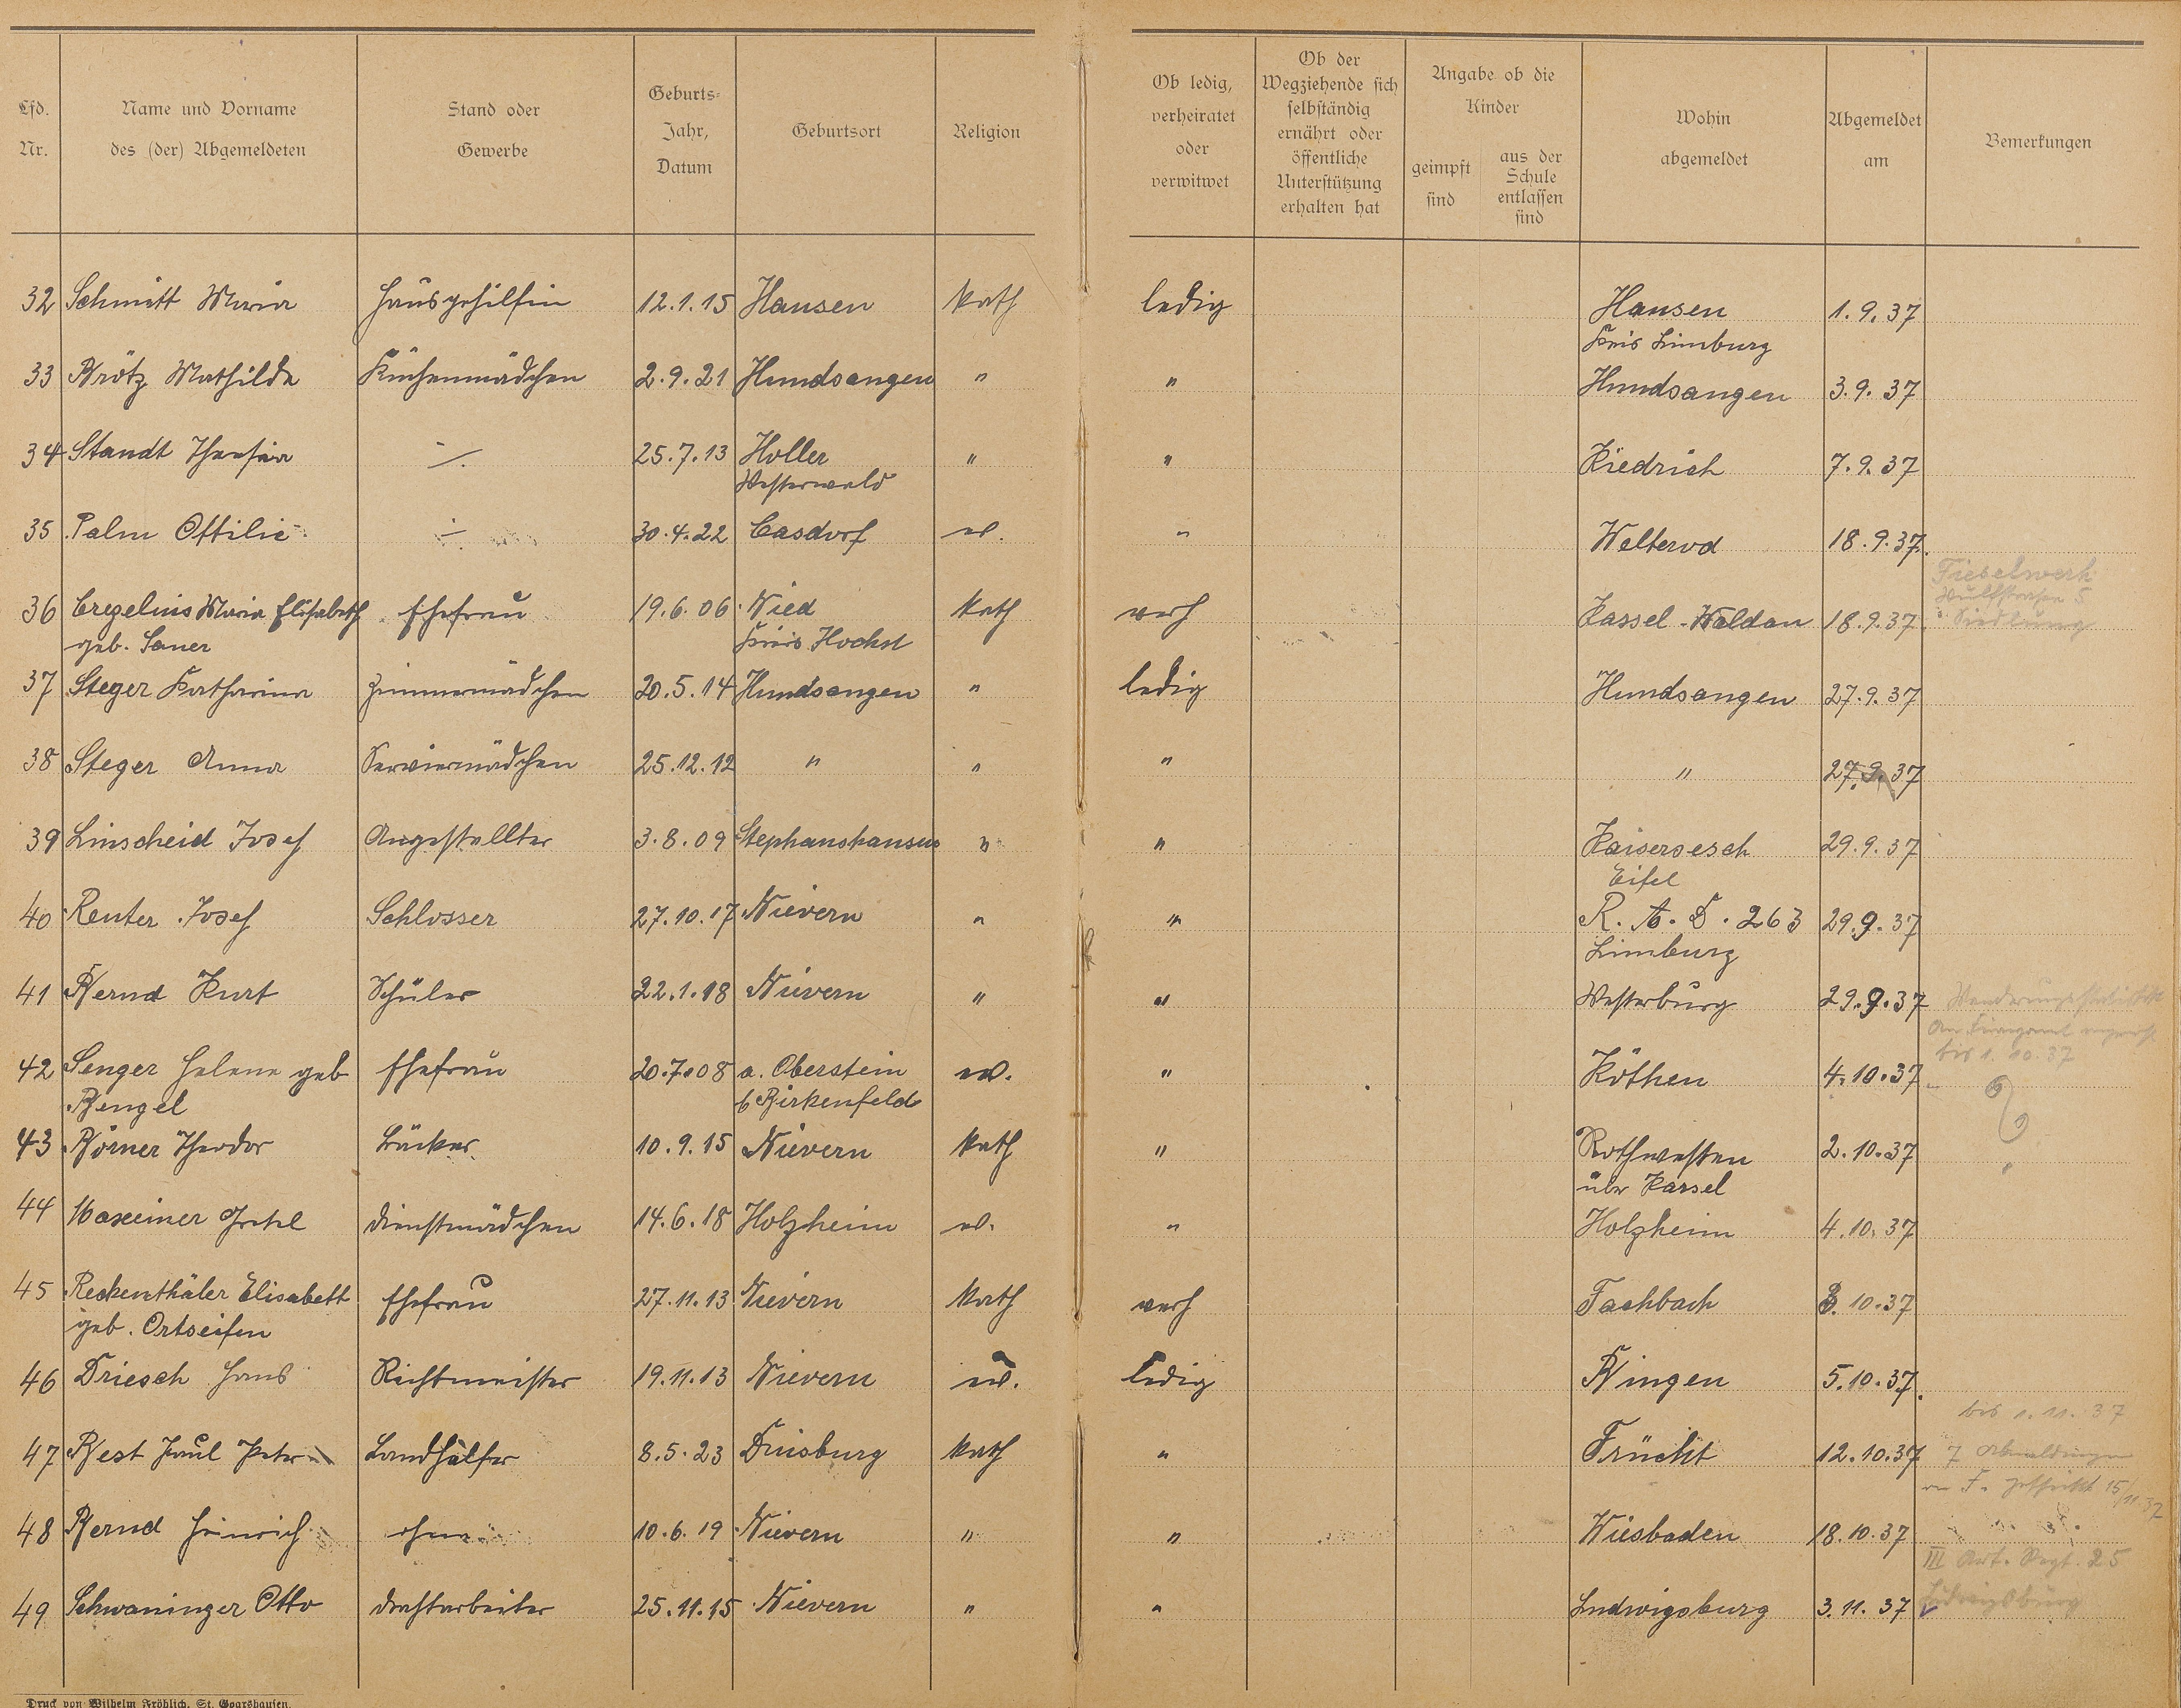 Lfd. Nr.
Name und Vorname des (der) Abgemeldeten
Stand oder Gewerbe
Geburts-Jahr, Datum
Geburtsort
Religion
Ob ledig, verheiratet oder verwitwet
Ob der Wegziehende sich selbständig ernährt oder öffentliche Unterstützung erhalten hat
Angabe ob die Kinder
geimpft sind
aus der Schule entlassen sind
Wohin abgemeldet
Abgemeldet am
Bemerkungen
32 Schmitt Maria Hausgehilfin 12.1.15 Hausen kath ledig Hausen 1.9.37
Kreis Limburg
33 Brötz Mathilde Küchenmädchen 2.9.21 Hundsangen " " Hundsangen 3.9.37
34 Staudt Theresia -/. 25.7.13 Holler " " Kiedrich 7.9.37
Westerwald
35 Palm Ottilie -/- 30.4.22 Casdorf ev. " Welterod 18.9.37.
Fieselwerk
Wulfstrasse 5
36 Cregelius Maria Elisabeth Ehefrau 19.6.06 Nied kath verh Kassel-Waldau 18.9.37. Siedlung
geb. Sauer Kreis Höchst
37 Steger Katharina Zimmermädchen 20.5.14 Hundsangen " ledig Hundsangen 27.9.37
38 Steger Anna Serviermädchen 25.12.12 " " " " 27.9.37
39 Linscheid Josef Angestellter 3.8.09 Stephanshausen " " Kaisersesch 29.9.37
Eifel
40 Reuter Josef Schlosser 27.10.17 Nievern " " R.A.D. 263 29.9.37
Limburg
41 Bernd Kurt Schüler 22.1.18 Nievern " " Westerburg 29.9.37 Wanderungsstatistik
bis 1.10.37
42 Senger Helene geb Ehefrau 20.7.08 a. Oberstein ev. " Köthen 4.10.37
Bengel b Birkenfeld
43 Börner Theodor Bäcker 10.9.15 Nievern kath " Rothwesten 2.10.37
über Kassel
44 Maxeiner Gretel Dienstmädchen 14.6.18 Holzheim ev. " Holzheim 4.10.37
45 Reckenthäler Elisabett Ehefrau 27.11.13 Nievern kath verh Fachbach 3.10.37
geb. Ortseifen
46 Driesch Hans Richtmeister 19.11.13 Nievern ev. ledig Bingen 5.10.37.
bis 1.11.37
47 Best Paul Peter Landhelfer 8.5.23 Duisburg kath " Frücht 12.10.37 7 Abmeldungen
an F. geschickt 15/11.37
48 Bernd Heinrich ohne 10.6.19 Nievern " " Wiesbaden 18.10.37
III Art. Regt. 25
49 Schwaninger Otto Drahtarbeiter 25.11.15 Nievern " " Ludwigsburg 3.11.37 Ludwigsburg
Druck von Wilhelm Fröhlich, St. Goarshausen.